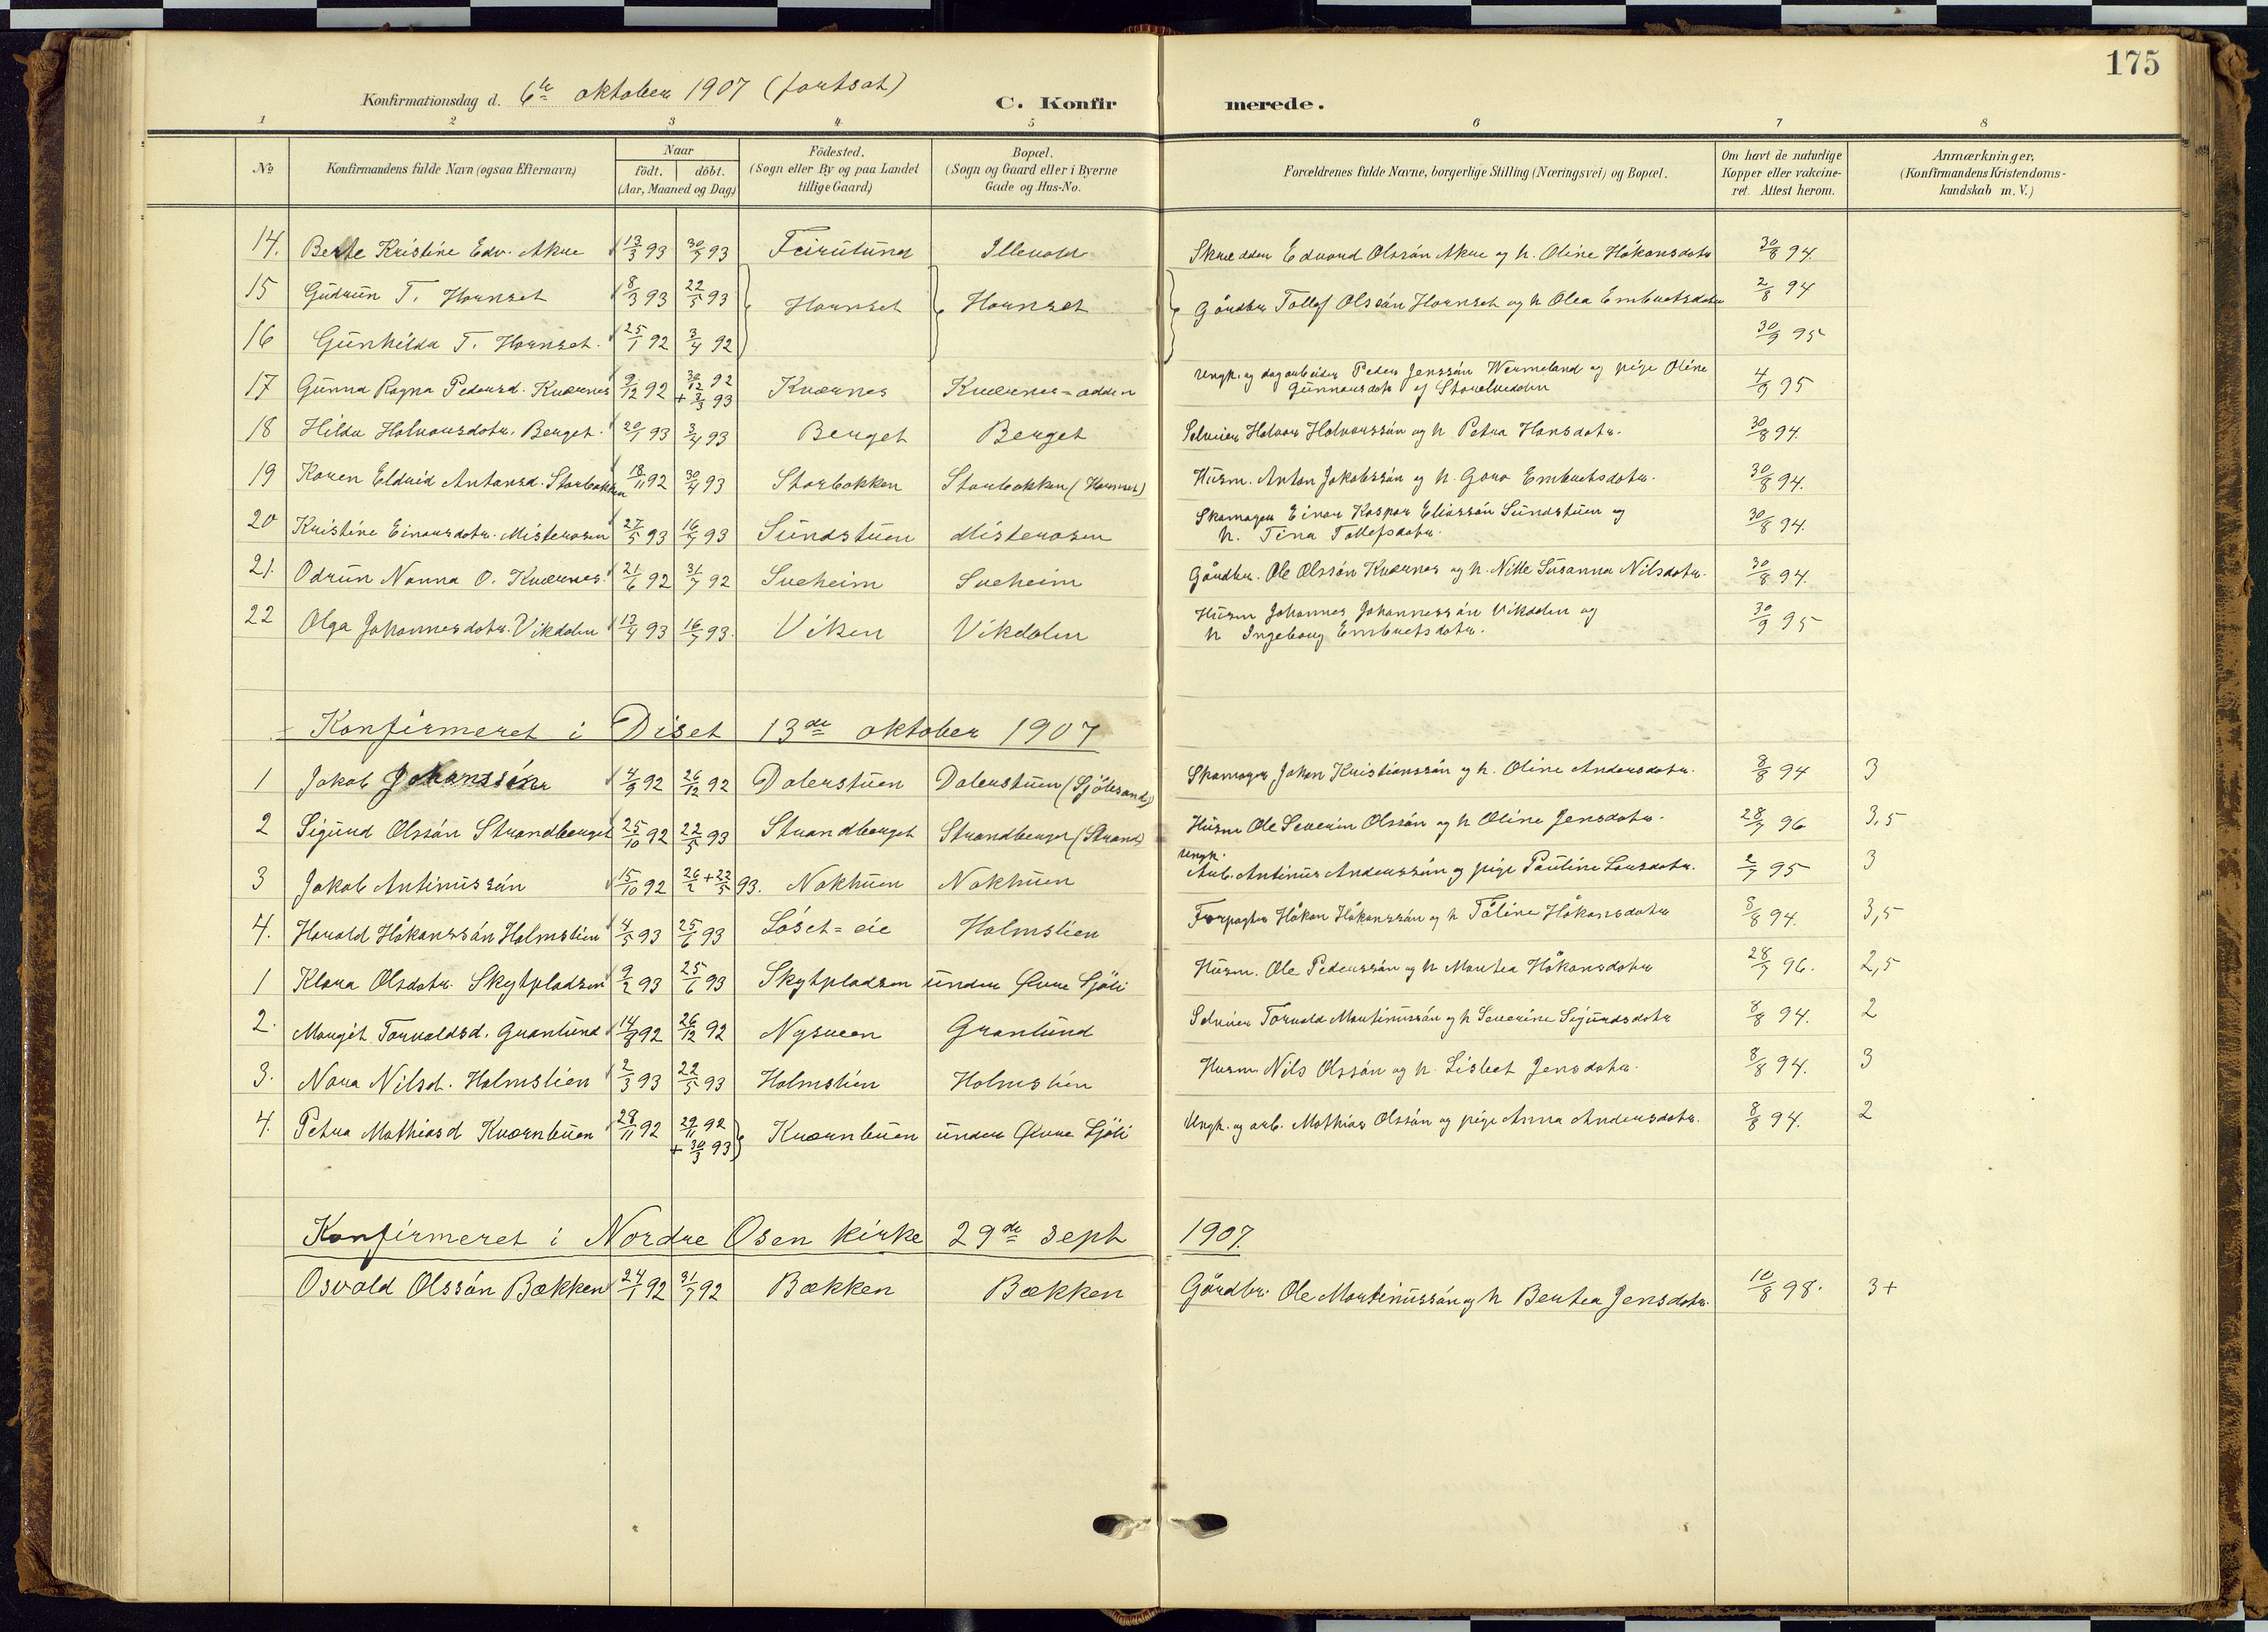 175
Konfirmationsdag d. 6te oktober 1907 (fortsat)
C. Konfirmerede.
1 2 3 4 5 6 7 8
No
Konfirmandens fulde Navn (ogsaa Efternavn)
Naar
födt. döbt.
(Aar, Maaned og Dag)
Födested.
(Sogn eller By og paa Landet
tillige Gaard)
Bopæl.
(Sogn og Gaard eller i Byerne
Gade og Hus-No.
Forældrenes fulde Navne, borgerlige Stilling (Næringsvei) og Bopæl.
Om havt de naturlige
Kopper eller vakcine-
ret. Attest herom.
Anmærkninger,
(Konfirmandens Kristendoms-
kundskab m. V.)
14. Berte Kristine Edv. Akre 13/3 93 30/7 93 Feirulund Illevold Skrædder Edvard Olssön Akre og h. Oline Håkansdotr 30/8 94.
15 Gudrun T. Hornset 8/3 93 22/5 93 Hornset Hornset Gårdbr Tollef Olssön Hornset og h Olea Embretsdotr 2/8 94
16 Gunhilda T. Hornset. 25/1 92 3/4 92 30/9 95
17 Gunna Ragna Pedersd. Kværnes 9/12 92 30/12 92 + 3/3 93 Kværnes Kværnes-odden Ungk. og dagarbeider Peder Jenssön Wermeland og pige Oline
Gunnarsdotr af Storelvedalen 4/9 95
18 Hilda Halvorsdotr. Berget. 20/1 93 3/4 93 Berget Berget Selveier Halvor Halvorssön og h Petra Hansdotr. 30/8 94.
19 Karen Eldrid Antonsd. Storbakken 18/11 92 30/4 93 Storbakken Storbakken (Hornset) Husm. Anton Jakobssön og h. Goro Embretsdotr. 30/8 94.
20 Kristine Einarsdotr. Misterosen 27/5 93 16/7 93 Sundstuen Misterosen Skomager Einar Kaspar Eliassön Sundstuen og
h. Tina Tollefsdotr. 30/8 94.
21. Odrun Nanna O. Kværnes. 21/6 92 31/7 92 Sveheim Sveheim Gårdbr. Ole Olssön Kværnes og h. Nille Susanna Nilsdotr. 30/8 94.
22 Olga Johannesdotr. Vikdalen 13/4 93 16/7 93. Viken Vikdalen Husm Johannes Johannessön Vikdalen og
h Ingeborg Embretsdotr. 30/9 95
Konfirmeret i Diset 13de oktober 1907
1 Jakob Johanssön 4/9 92 26/12 92 Dalerstuen Dalerstuen (Sjölisand) Skomager Johan Kristianssön og h. Oline Andersdotr. 8/8 94 3
2 Sigurd Olssön Strandberget 25/10 92 22/5 93 Strandberget Strandberget (Strand) Husm Ole Severin Olssön og h Oline Jensdotr. 28/7 96 3,5
3 Jakob Antinussön 15/10 92 26/2 + 22/5 93. Nakhuen Nakhuen Ungk.
Arb. Antinus Anderssön og pige Pauline Larsdotr. 2/7 95 3
4. Harald Håkanssön Holmslien 4/5 93 25/6 93 Löset-eie Holmslien Forpagter Håkan Håkanssön og h Täline Håkansdotr 8/8 94. 3,5
1 Klara Olsdotr. Skytpladsen 9/2 93 25/6 93 Skytpladsen under Øvre Sjöli Husm. Ole Pederssön og h Martea Håkansdotr 28/7 96. 2,5
2. Margit Torvaldsd. Granlund 14/8 92 26/12 92 Nysveen Granlund Selveier Torvald Martinussön og h Severine Sigurdsdotr 8/8 94. 2
3. Nora Nilsd. Holmslien 2/3 93 22/5 93 Holmslien Holmslien Husm Nils Olssön og h. Lisbet Jensdotr. 8/8 94. 3
4. Petra Mathiasd Kværnbuen 28/11 92 29/11 92 + 30/3 93 Kværnbuen under Øvre Sjöli Ungk. og arb. Mathias Olssön og pige Anna Andersdotr. 8/8 94. 2
Konfirmeret i Nordre Osen kirke 29de sept 1907.
Osvald Olssön Bækken 24/1 92 31/7 92 Bækken Bækken Gårdbr. Ole Martinussön og h Bertea Jensdotr. 10/8 98. 3+